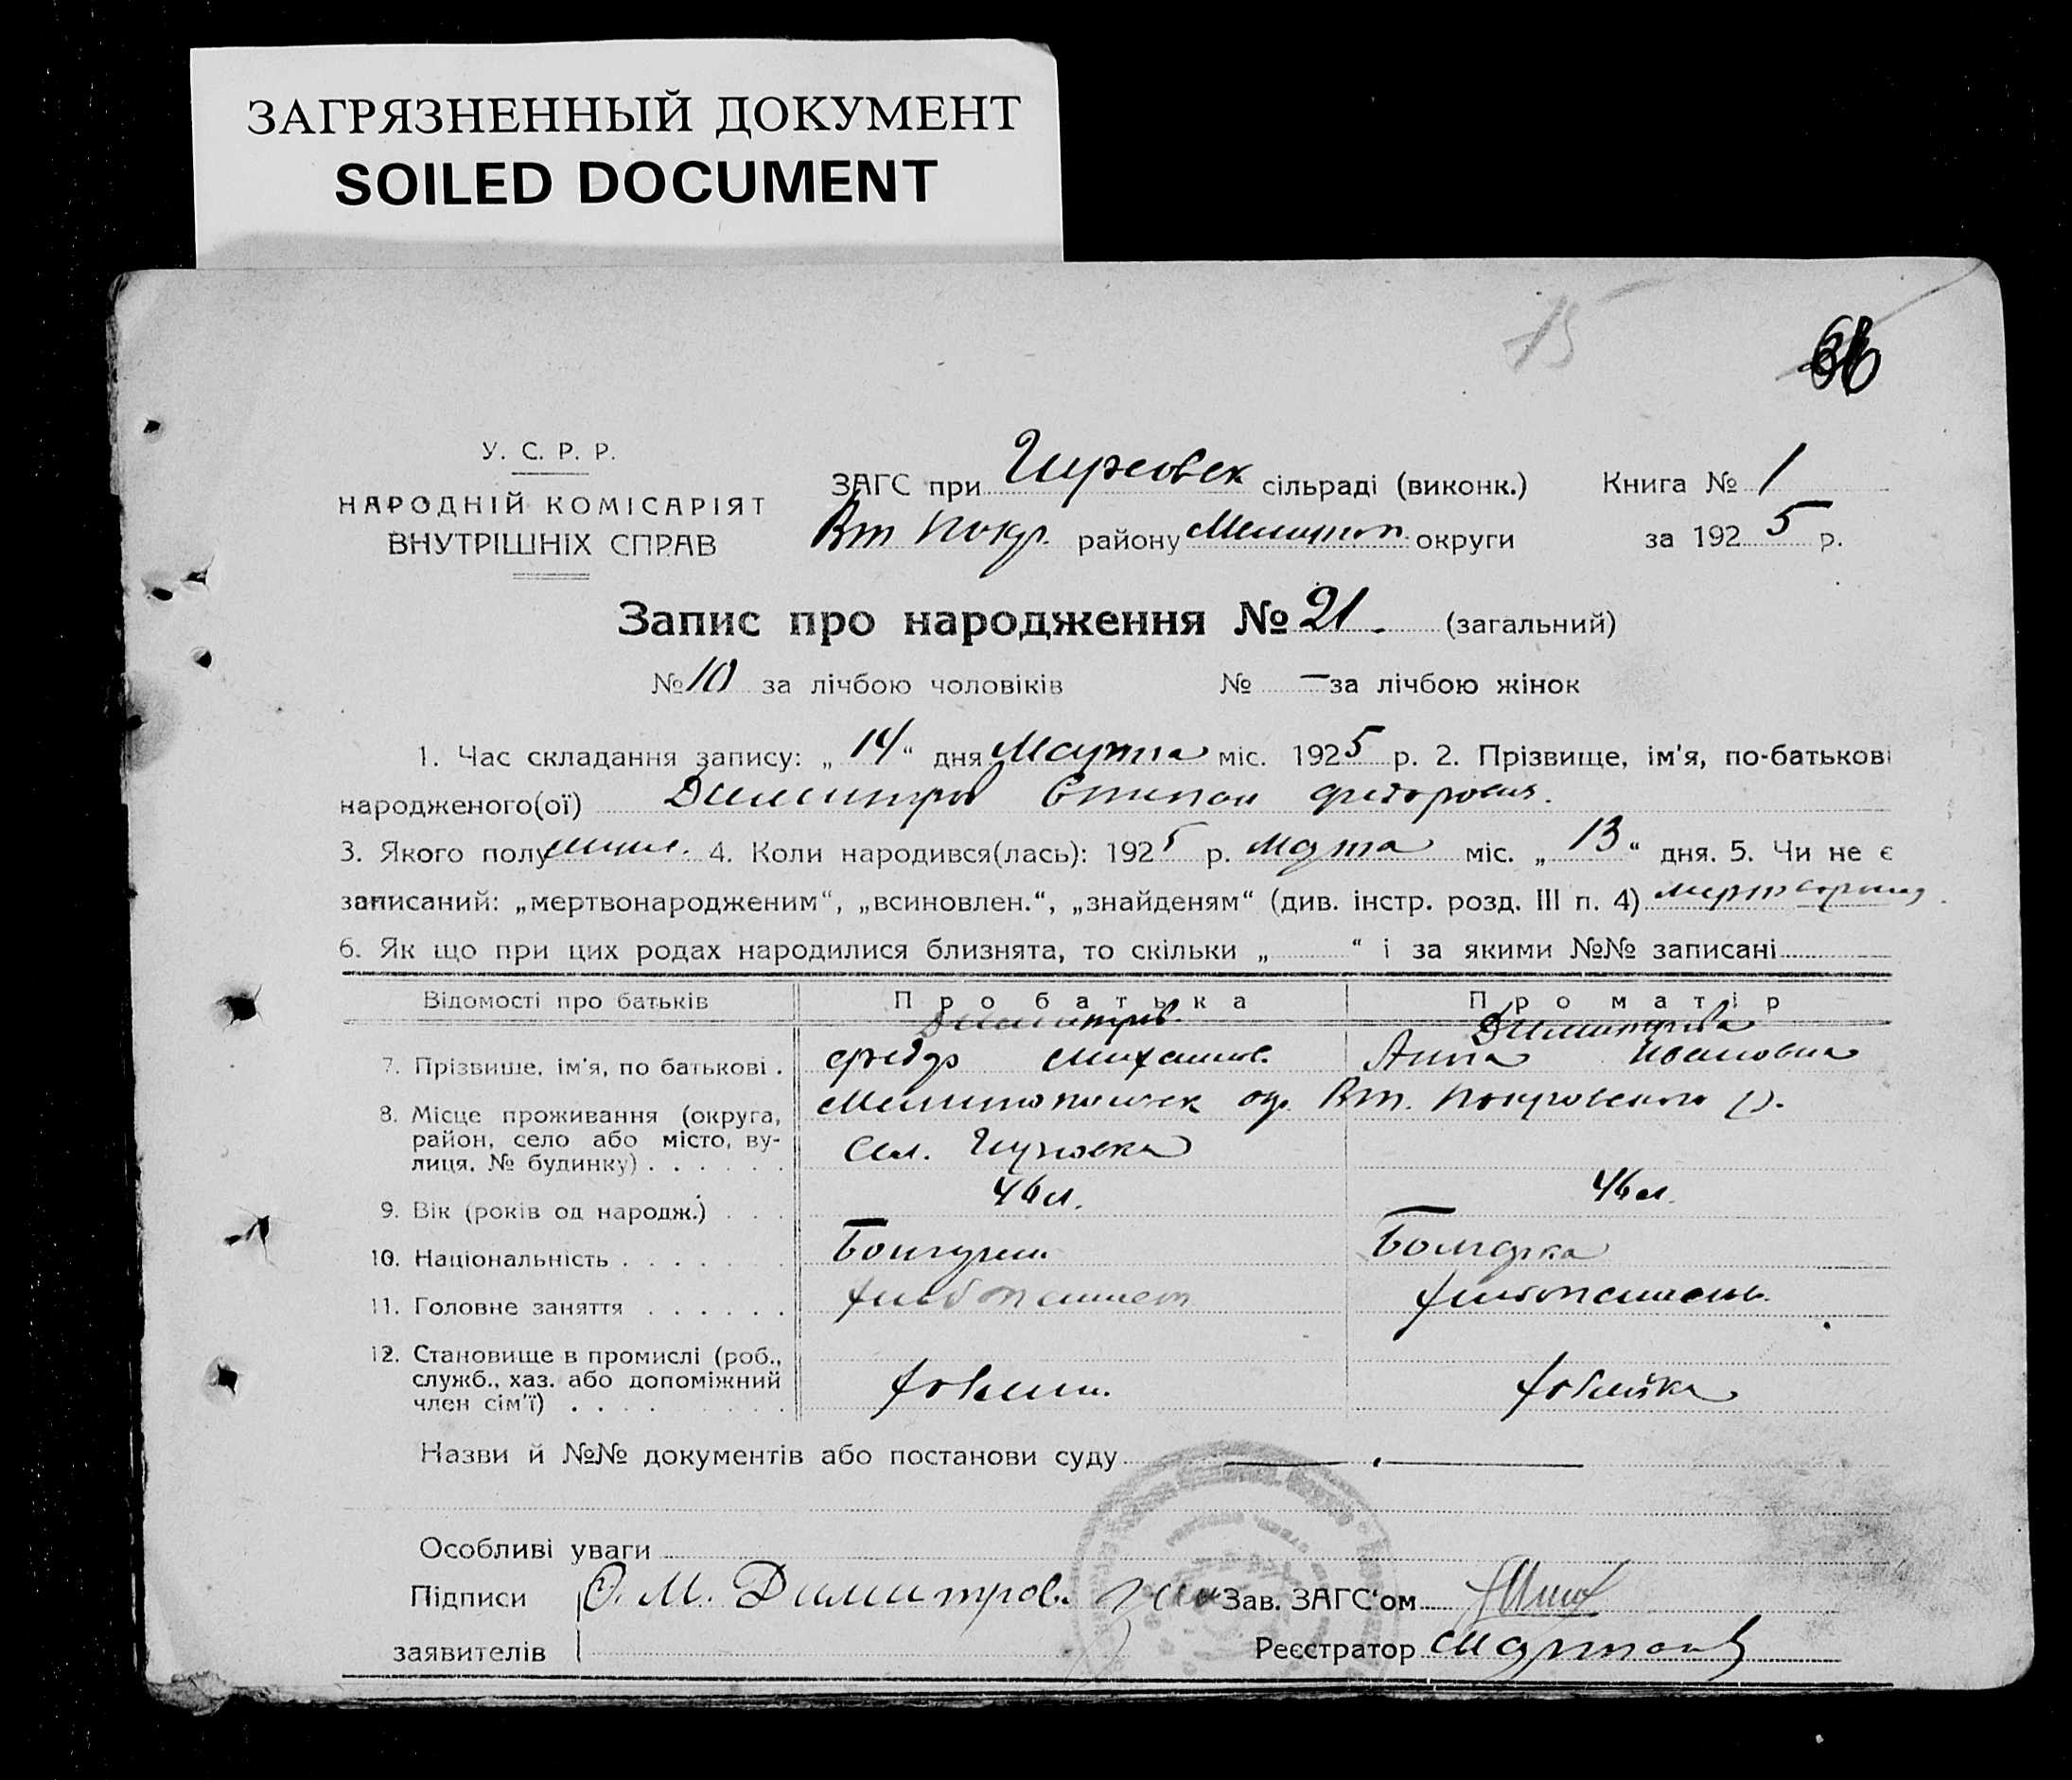 ЗАГРЯЗНЕННЫЙ ДОКУМЕНТ
SOILED DOCUMENT
15
У. С. Р. Р.
НАРОДНІЙ КОМІСАРІЯТ
ВНУТРІШНІХ СПРАВ
ЗАГС при Гирсовск сільраді (виконк.) Книга № 1
Вт Покр. району Мелитоп. округи за 1925 р.
Запис про народження № 21. (загальний)
№ 10 за лічбою чоловіків № — за лічбою жінок
1. Час складання запису: „14“ дня Марта міс. 1925 р. 2. Прізвище, ім'я, по-батькові
народженого(ої) Димитров Степан Федорович.
3. Якого полу 4. Коли народився(лась): 1925 р. Марта міс. „13“ дня. 5. Чи не є
записаний: „мертвонародженим“, „всиновлен.“, „знайденям“ (див. інстр. розд. III п. 4)
6. Як що при цих родах народилися близнята, то скільки „ “ і за якими №№ записані
Відомості про батьків Про батька Про матір
Димитров Димитрова
7. Прізвище, ім'я, по батькові . Федор Михайлов. Анна Ивановна
8. Місце проживання (округа, район, село або місто, вулиця, № будинку) . . . . . . Мелитопольск окр. Вт. Покровского р.
Сел. Гирсовка
9. Вік (років од народж.) . . . 46 л. 46 л.
10. Національність . . . . . . . Болгарин. Болгарка
11. Головне заняття . . . . . . хлебопашест хлебопашень.
12. Становище в промислі (роб., служб., хаз. або допоміжний член сім'ї) . . . . . . . . . хозяин. хозяйка
Назви й №№ документів або постанови суду —— . ——
Особливі уваги
Підписи Ф. М. Димитров. Зав. ЗАГС'ом
заявителів Реєстратор